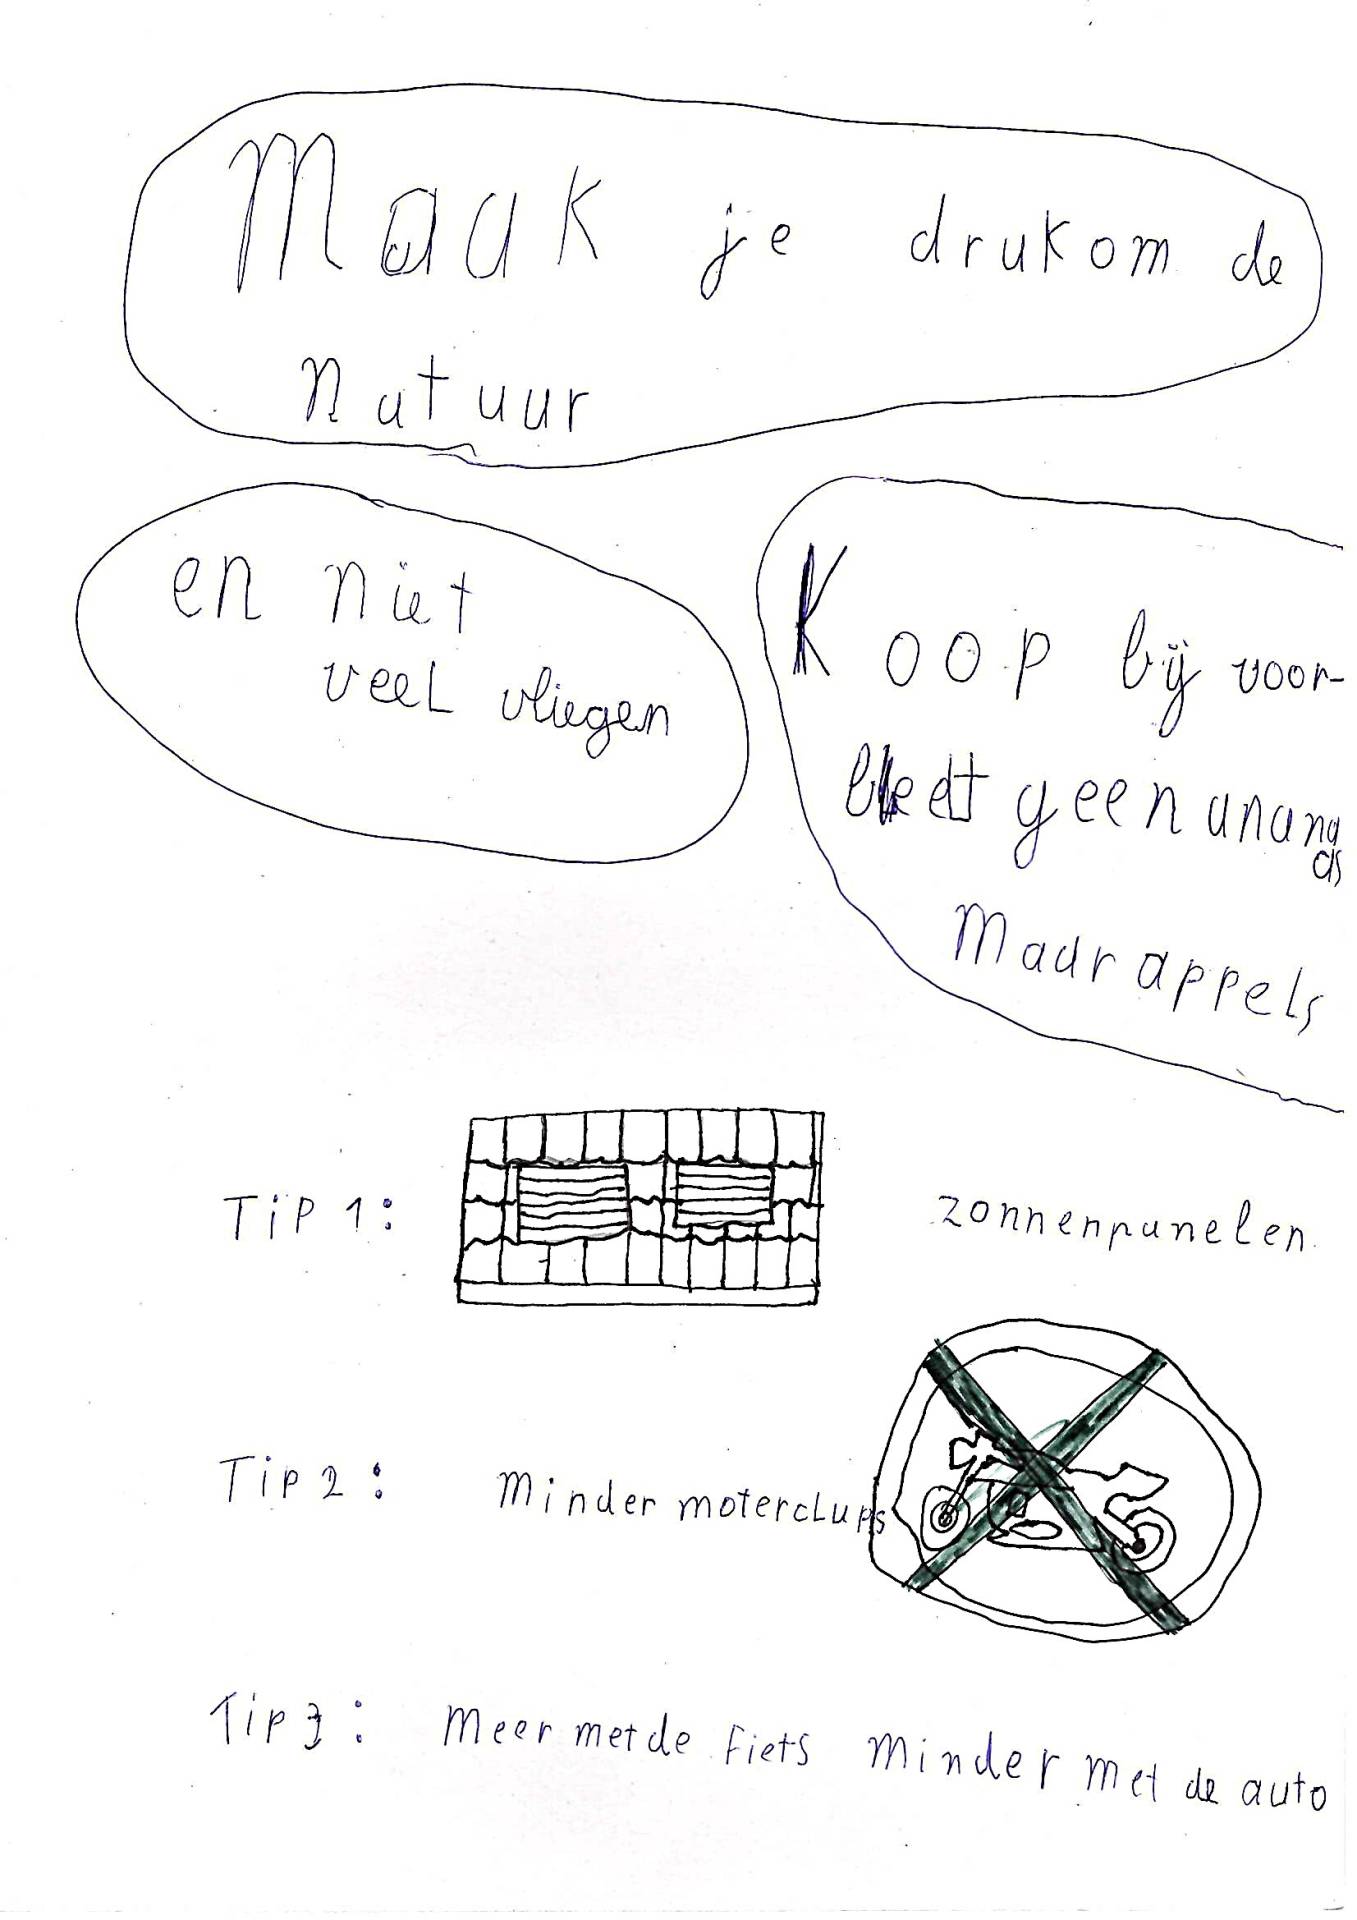 Maak je druk om de
natuur
en niet
veel vliegen
Koop bij voor-
bleedt geen anana
as
maar appels
Tip 1: zonnenpanelen.
Tip 2: Minder moterclups
Tip 3: Meer met de Fiets minder met de auto